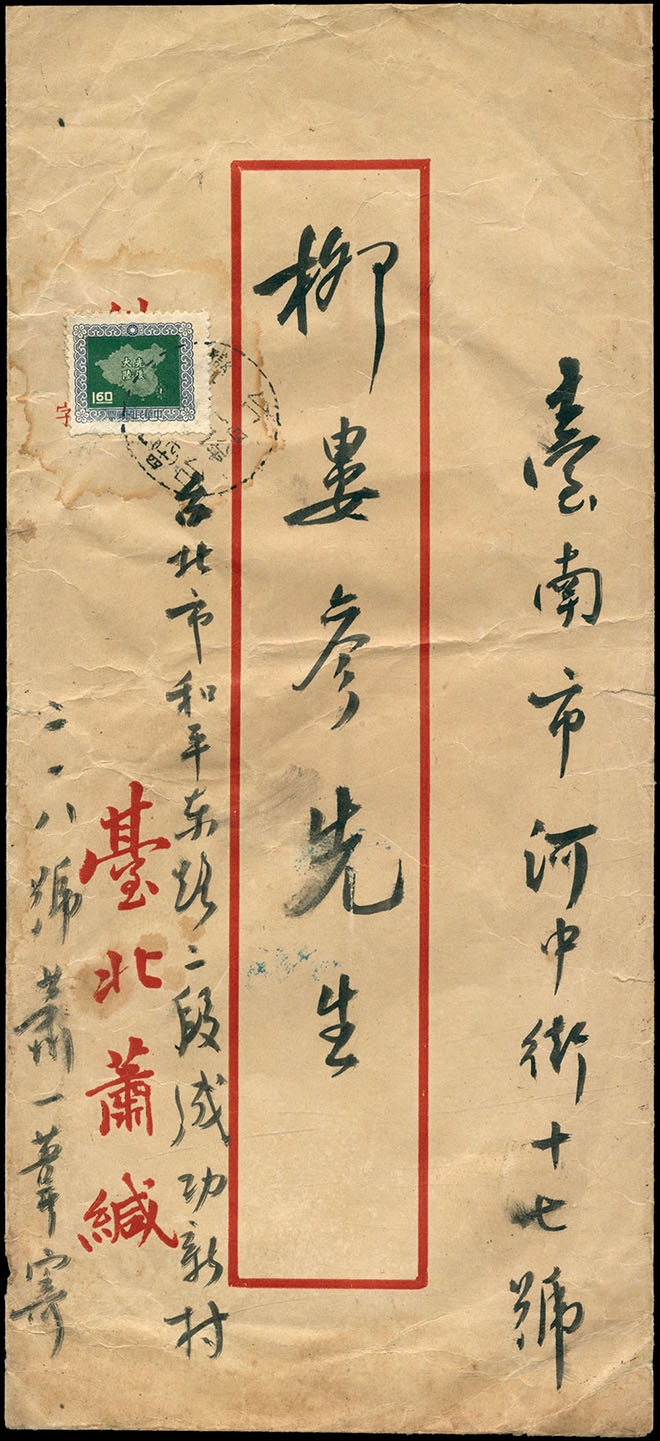 臺南市河中街十七號
柳婁參先生
台北市和平东路二段成功新村
二一八號 蕭一葦寄
臺北蕭緘
字
光復大陸
160
中華民國郵票